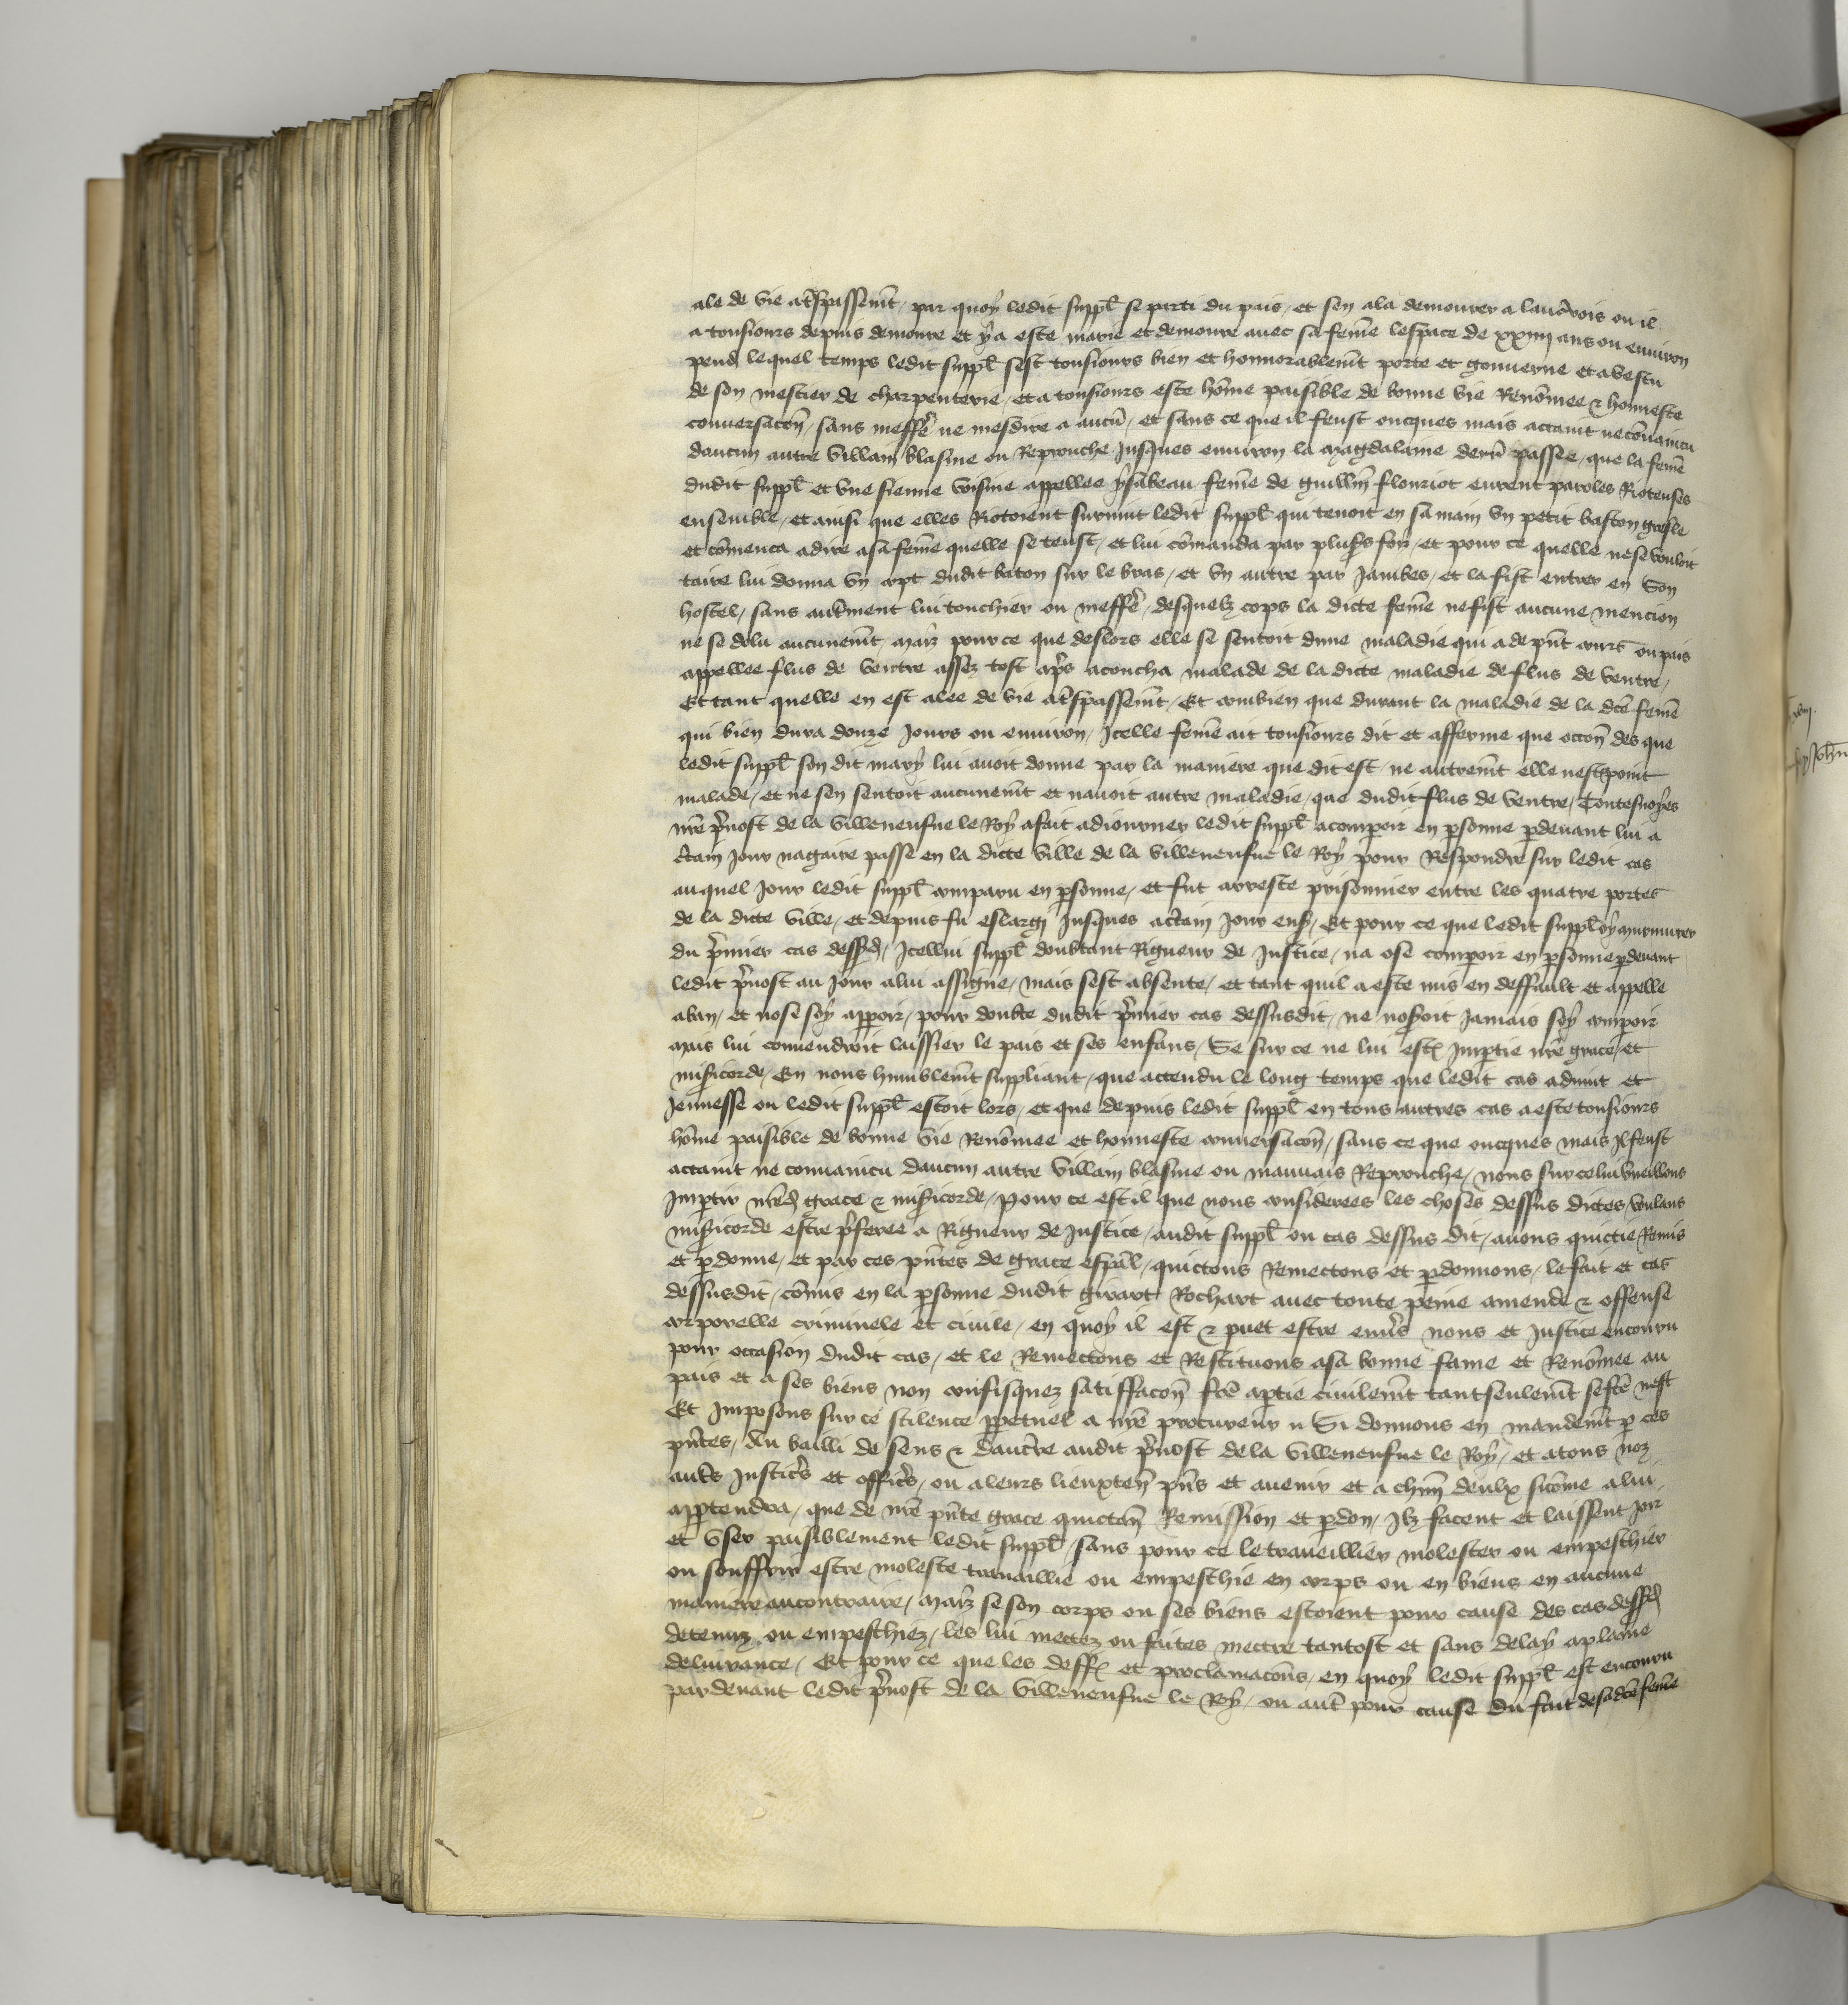 ale de vie a tͬspassemt / par quoy ledit suppl̃ se parti du pais / et sen ala demourer a lau᷑rois ou il
a tousiours depuis demoure et y a este marie et demoure auec sa feme lespace de xxiiii ans ou enuiron
pend̃ lequel temps ledit suppl̃ sest tousiours bien et honnorablemt porte et gouuerne et a vescu
de son mestier de charpenterie / et a tousiours este hõme paisible de bonne vie Renõmee & honneste
conuersacõn / sans meffẽ ne mesdire a aucũ / et sans ce que il feust oncques mais actaint ne cõuaincu
daucun autre villain blasme ou Reprouche Jusques enuiron la magdalaine derr̃ passee / que la femẽ
dudit suppl̃ et vne sienne voisine appellee ysabeau femẽ de guillm̃ flouriot eurent paroles Rioteuses
ensemble / et ainsi que elles Riotoient suruint ledit suppl̃ qui tenoit en sa main vn petit baston gresle
et cõmenca a dire a sa femẽ quelle se teust / et lui cõmanda par plus̃s foiz / et pour ce quelle ne se vouloit
taire lui donna vn cop dudit baton sur le bras / et vn autre par Jambes / et la fist entrer en son
hostel / sans autr̃ment lui touchier ou meffẽ / desquelz cops la dicte femẽ ne fist aucune mencion
ne se dolu aucunemt̃ / maiz pour ce que deslors elle se sentoit dune maladie qui a de pñt court ou pais
appellee flus de ventre assez tost ap̃s acoucha malade de la dicte maladie de flus de ventre /
Et tant quelle en est alee de vie a tͬspassemt̃ / Et combien que durant la maladie de la dcẽ femẽ
qui bien dura douze Jours ou enuiron / Icelle femẽ ait tousiours dit et afferme que occõn des que
ledit suppl̃ son dit mary lui auoit donne par la maniere que dit est / ne autremt̃ elle nestpoint
malade / et ne sen sentoit aucunemt̃ et nauoit autre maladie / que dudit flus de ventre / Toutesuoyes
nr̃e p̃uost de la villeneufue le Roy a fait adiourner ledit suppl̃ a compoir en psonne pdeuant lui a
c̃tain Jour nagaire passe en la dicte ville de la villeneufue le Roy pour Respondre sur ledit cas
auquel Jour ledit suppl̃ comparu en psonne / et fut arreste prisonnier entre les quatre portes
de la dicte ville / et depuis fu eslargi Jusques a c̃tain Jour ens̃ / Et pour ce que ledit suppl̃ oy murmurer
du p̃mier cas dessd̃ / Icellui suppl̃ doubtant Rigueur de Justice / na ose compoir en psonne pdeuant
ledit p̃uost au Jour a lui assigne / mais sest absente / et tant quil a este mis en deffault et appelle
a ban / et nose soy appoir / pour doubte dudit p̃mier cas dessusdit / ne noseroit Jamais soy compoir
mais lui conuendroit laissier le pais et ses enfans / Se sur ce ne lui est̃ Imptie nr̃e grace / et
mis̃icorde / En nous humblemt̃ suppliant / que actendu le long temps que ledit cas aduint et
Jeunesse ou ledit suppl̃ estoit lors / et que depuis ledit suppl̃ en tous autres cas a este tousiours
hõme paisible de bonne vie Renõmee et honneste conuersacõn / sans ce que oncques mais Il feust
actaint ne conuaincu daucun autre villain blasme ou mauuais Reprouche / nous sur ce lui vueillons
Imptir nr̃ed̃ grace & mis̃icorde / Pour ce est il que nous considerees les choses dessus dictes / voulans
mis̃icorde estre p̃feree a Rigueur de Justice / audit suppl̃ ou cas dessus dit / auons quictie Remis
et pdonne / et par ces pñtes de grace esp̃al / quictons Remectons et pdonnons / le fait et cas
dessusdit / cõmis en la psonne dudit girart Rochart auec toute peine amende & offense
corporelle criminele et ciuile / en quoy il est & puet estre enu̾s nous et Justice encouru
pour occasion dudit cas / et le Remectons et Restituons a sa bonne fame et Renõmee au
pais et a ses biens non confisquez satiffacõn fcẽ a ptie ciuilemt̃ tantseulemt̃ se fcẽ nest
Et Imposons sur ce scilence ppetuel a nr̃e procureur // Si donnons en mandemt̃ p ces
pñtes / Au bailli de sens & daucr̃re audit p̃uost de la villeneufue le Roy / et a tous noz
autr̃s Justic̃s et offic̃s / ou a leurs lieuxten̾ pñs et auenir et a chũn deulx sicõme a lui
apptendra / que de nr̃e pñte grace quictañ Remission et pdon / Ilz facent et laissent Joir
et vser paisiblement ledit suppl̃ / sans pour ce le traueillier molester ou empeschier
ou souffrir estre moleste trauaillie ou empeschie en corps ou en biens en aucune
maniere au contraire / maiz se son corps ou ses biens estoient pour cause des cas dessd̃
detenuz ou empeschiez / les lui mettez ou faites mectre tantost et sans delay a plaine
deliurance / Et pour ce que les deff̃ et proclamacõns / en quoy ledit suppl̃ est encouru
pardeuant ledit p̃uost de la villeneufue le Roy / ou autr̃ pour cause du fait de sa dcẽ femẽ